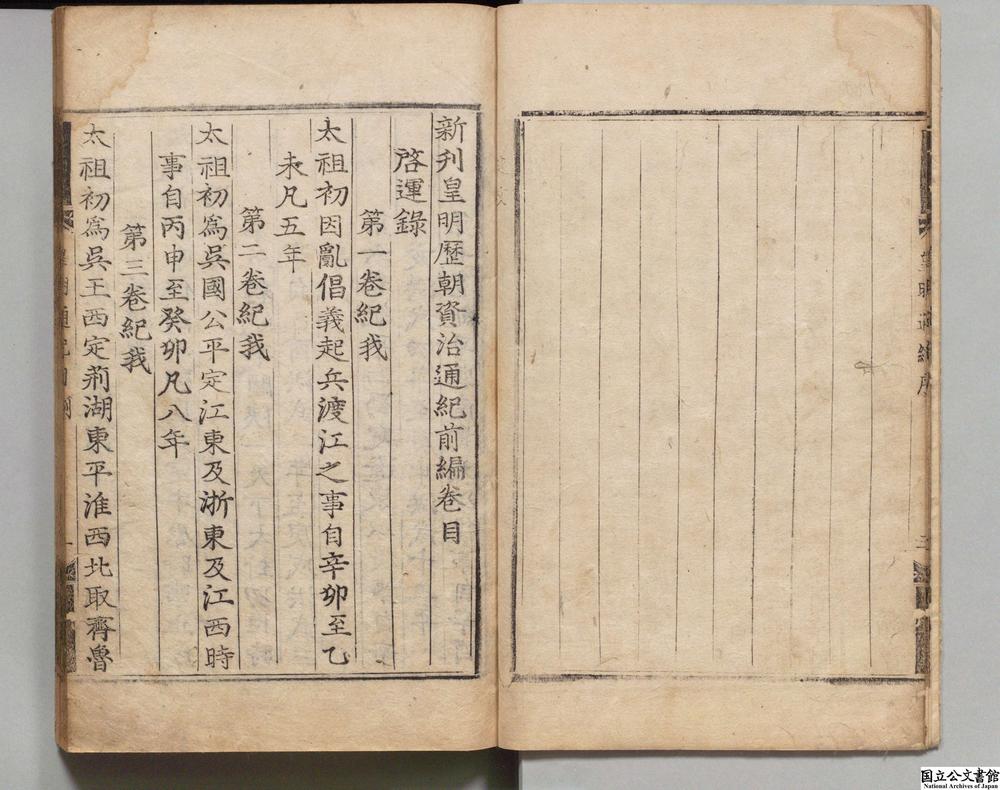 新刊皇明歷朝資治通紀前編卷目
啓運錄
第一卷紀我
太祖初因亂倡義起兵渡江之事自辛卯至乙
未凡五年
第二卷紀我
太祖初爲吳國公平定江東及浙東及江西時
事自丙申至癸卯凡八年
第三卷紀我
太祖初爲吳王西定荊湖東平淮西北取齊魯
国立公文書館
National Archives of Japan